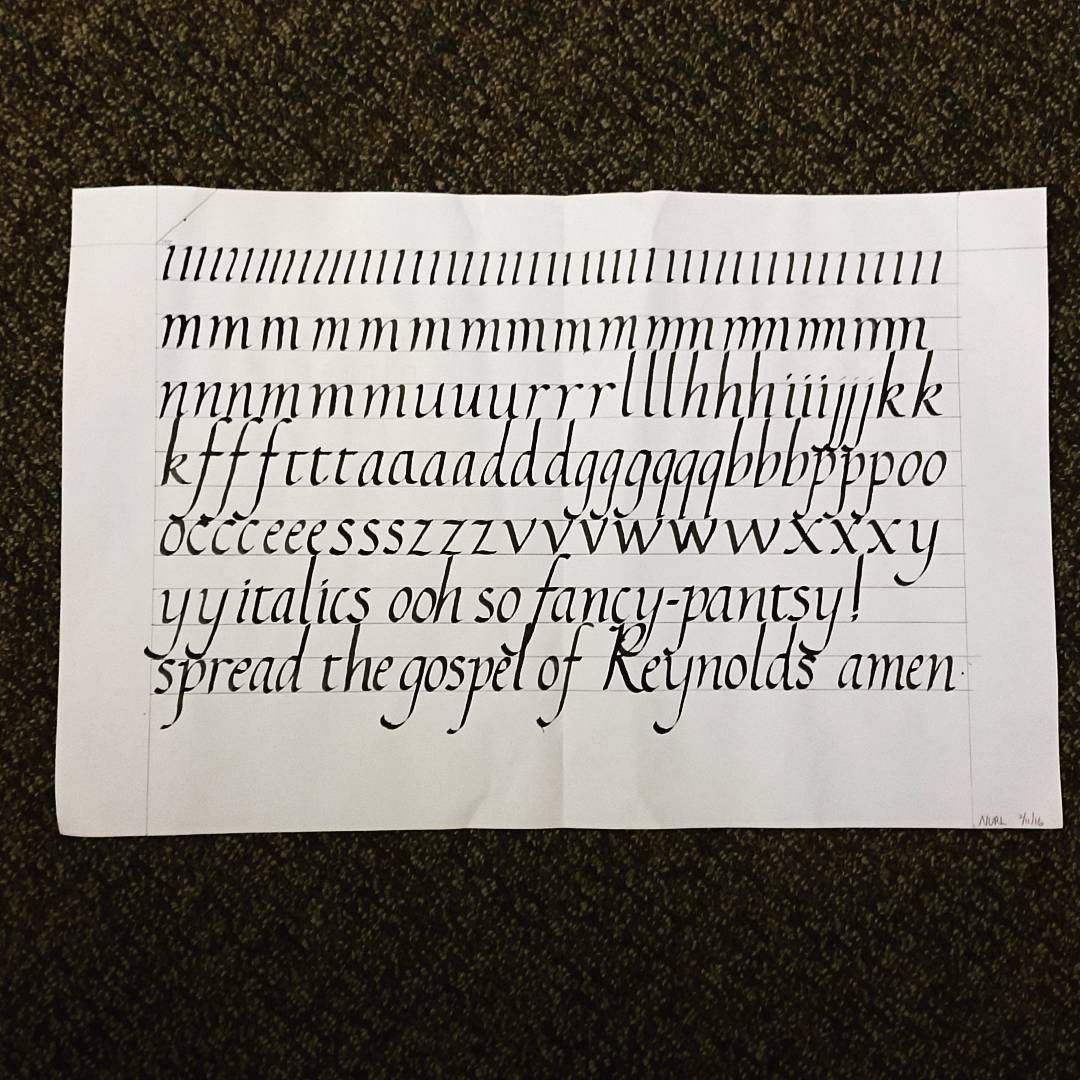 ıııııııııııııııııııııııııııııııııııııııııııııı
mmmmmmmmmmmmmmmm
nnnmmmuuurrrlllhhhiiijjjkk
kffftttaaaadddgggqqqbbbpppoo
occceeessszzzvvvwwwxxxy
yyitalics ooh so fancy-pantsy!
spread the gospel of Reynolds amen.
NURL 2/11/16